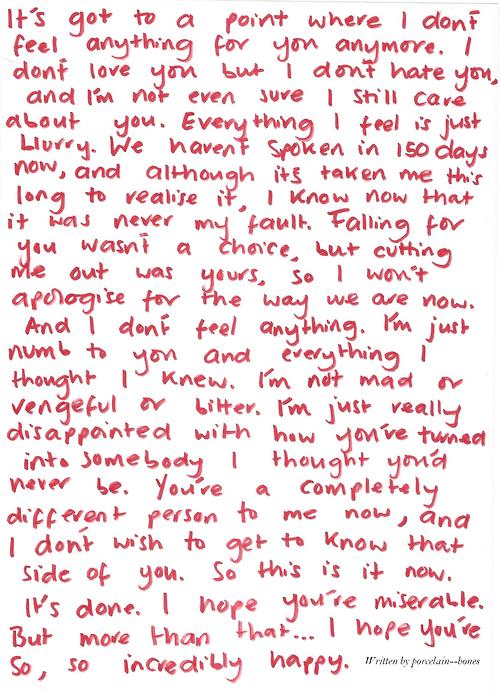 It's got to a point where I don't
feel anything for you anymore. I
don't love you but I don't hate you,
and I'm not even sure I still care
about you. Everything I feel is just
blurry. We haven't spoken in 150 days
now, and although its taken me this
long to realise it, I know now that
it was never my fault. Falling for
you wasn't a choice, but cutting
me out was yours, so I won't
apologise for the way we are now.
And I don't feel anything. I'm just
numb to you and everything I
thought I knew. I'm not mad or
vengeful or bitter. I'm just really
disappointed with how you've turned
into somebody I thought you'd
never be. You're a completely
different person to me now, and
I don't wish to get to know that
side of you. So this is it now.
It's done. I hope you're miserable.
But more than that... I hope you're
so, so incredibly happy. Written by porcelain--bones